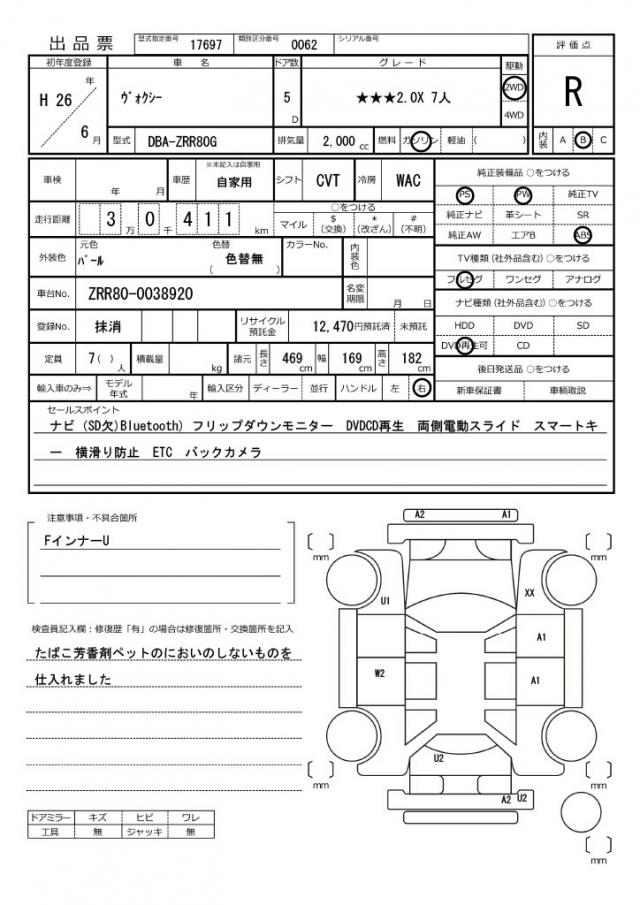 出品票 型式指定番号 17697 類別区分番号 0062 シリアル番号
初年度登録 車名 ドア数 グレード 駆動 評価点
H 26 年 6 月 ヴォクシー 5 D ★★★2.0X 7人 2WD 4WD R
型式 DBA-ZRR80G 排気量 2,000 cc 燃料 ガソリン 軽油 ( ) 内装 A B C
車検 年 月 車歴 ※未記入は自家用 自家用 シフト CVT 冷房 WAC
走行距離 3 万 0 千 4 1 1 km ○をつける
マイル $ (交換) * (改ざん) # (不明)
外装色 元色 パール 色替 色替無 ( ) カラーNo. 内装色
車台No. ZRR80-0038920 名変期限 月 日
登録No. 抹消 リサイクル預託金 12,470円預託済 未預託
定員 7( ) 人 積載量 kg 諸元 長さ 469 cm 幅 169 cm 高さ 182 cm
輸入車のみ⇒ モデル年式 年 輸入区分 ディーラー 並行 ハンドル 左 右
純正装備品 ○をつける
PS PW 純正TV
純正ナビ 革シート SR
純正AW エアB ABS
TV種類 (社外品含む) ○をつける
フルセグ ワンセグ アナログ
ナビ種類 (社外品含む) ○をつける
HDD DVD SD
DVD再生可 CD
後日発送品 ○をつける
新車保証書 車輌取説
セールスポイント
ナビ (SD欠)Bluetooth) フリップダウンモニター DVDCD再生 両側電動スライド スマートキ
ー 横滑り防止 ETC バックカメラ
注意事項・不具合箇所
FインナーU
検査員記入欄:修復歴「有」の場合は修復箇所・交換箇所を記入
たばこ芳香剤ペットのにおいのしないものを
仕入れました
ドアミラー キズ ヒビ ワレ
工具 無 ジャッキ 無
A2 A1
mm mm
U1 XX
A1
W2 A1
U2
mm mm
A2 U2
mm